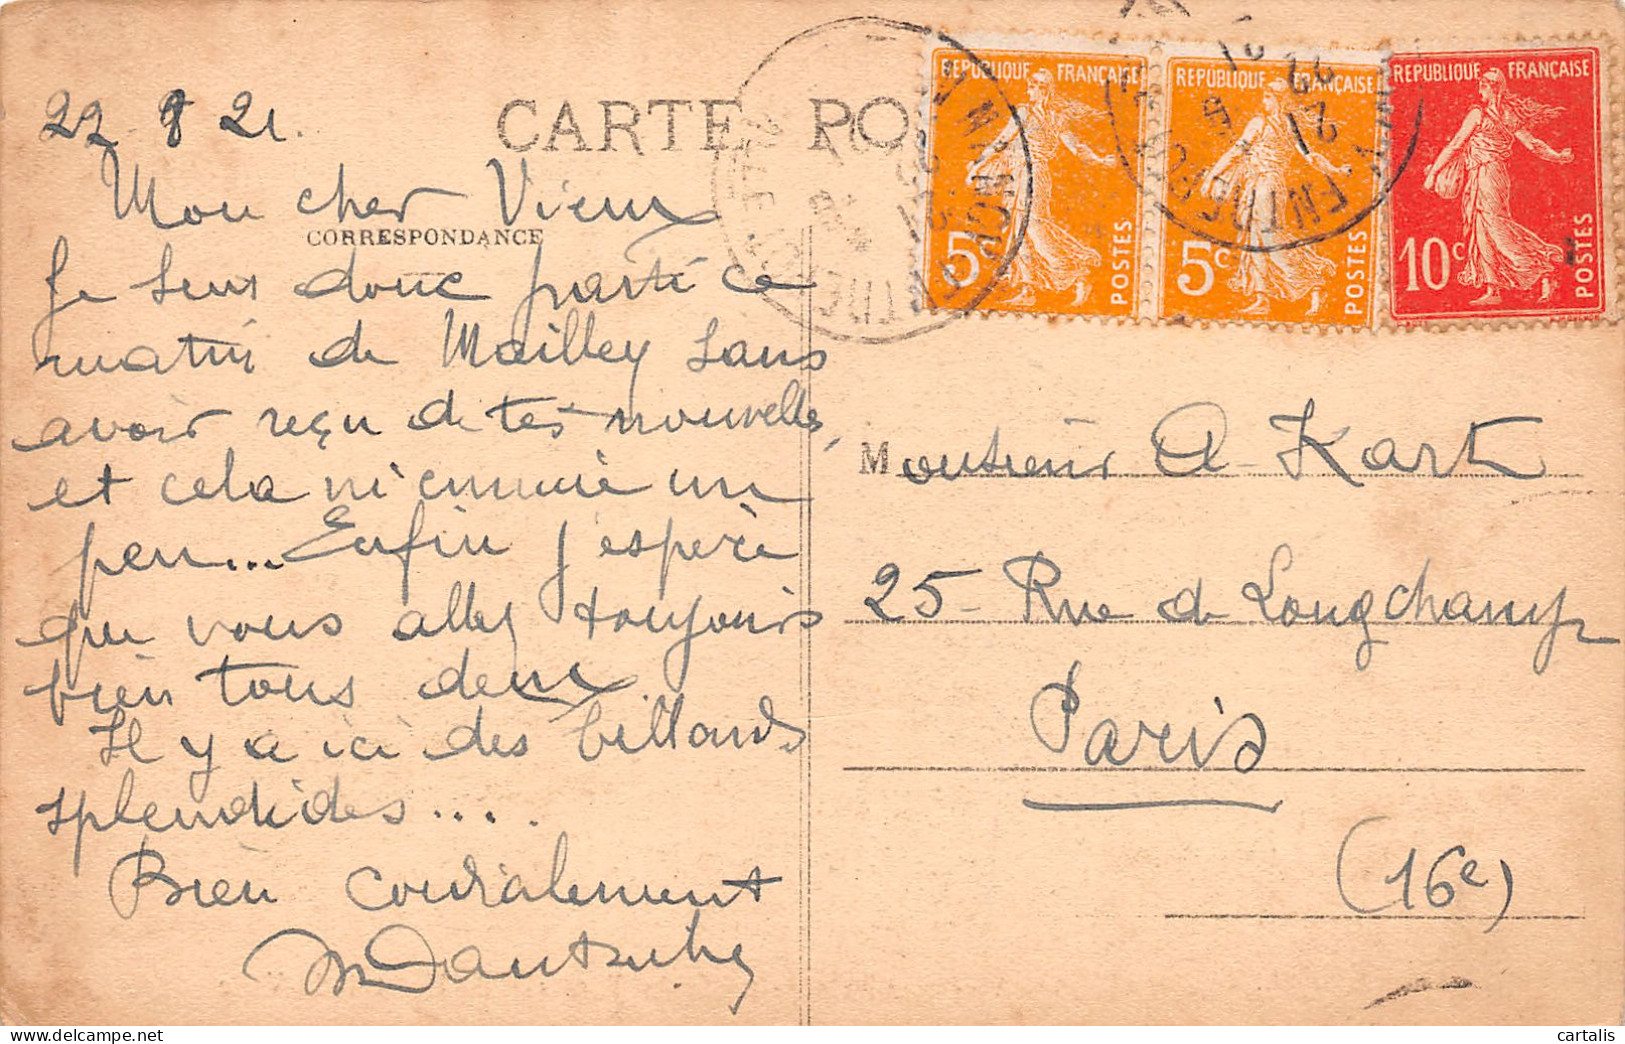 CARTE PO
CORRESPONDANCE
22 8 21.
Mon cher Vieux
Je suis donc parti ce
matin de Mailley sans
avoir reçu de tes nouvelles
et cela m'ennuie un
peu... Enfin j'espère
que vous allez toujours
bien tous deux
Il y a ici des billards
splendides....
Bien cordialement
REPUBLIQUE FRANÇAISE
5c POSTES
REPUBLIQUE FRANÇAISE
5c POSTES
REPUBLIQUE FRANÇAISE
10c POSTES
Monsieur A. Kart
25 - Rue de Longchamp
Paris
(16e)
cartalis